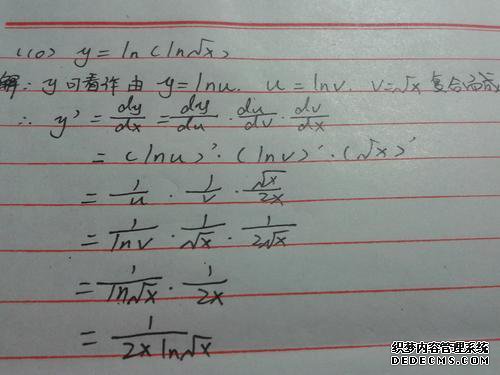 (10) y = ln(ln√x)
解：y可看作由 y=lnu. u=lnv. v=√x 复合而成
∴ y' = dy/dx = dy/du · du/dv · dv/dx
= (lnu)' · (lnv)' · (√x)'
= 1/u · 1/v · √x/2x
= 1/lnv · 1/√x · 1/2√x
= 1/ln√x · 1/2x
= 1/2x ln√x
织梦内容管理系统
DEDECMS.COM